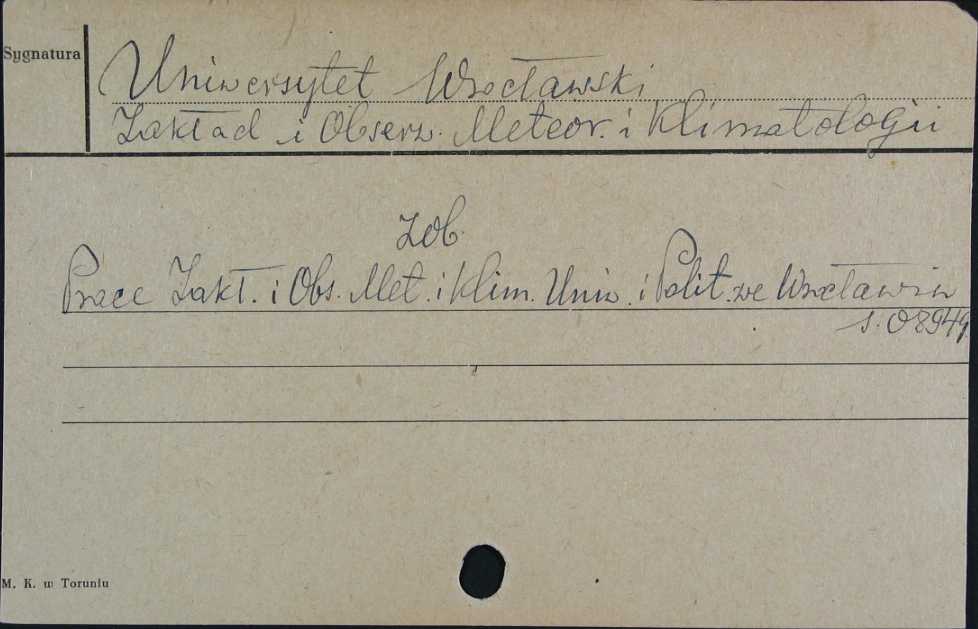 Sygnatura
Uniwersytet Wrocławski
Zakład i Obserw. Meteor. i Klimatologii
zob.
Prace Zakł. i Obs. Met. i Klim. Uniw. i Polit. we Wrocławiu
s. 08949
M. K. w Toruniu